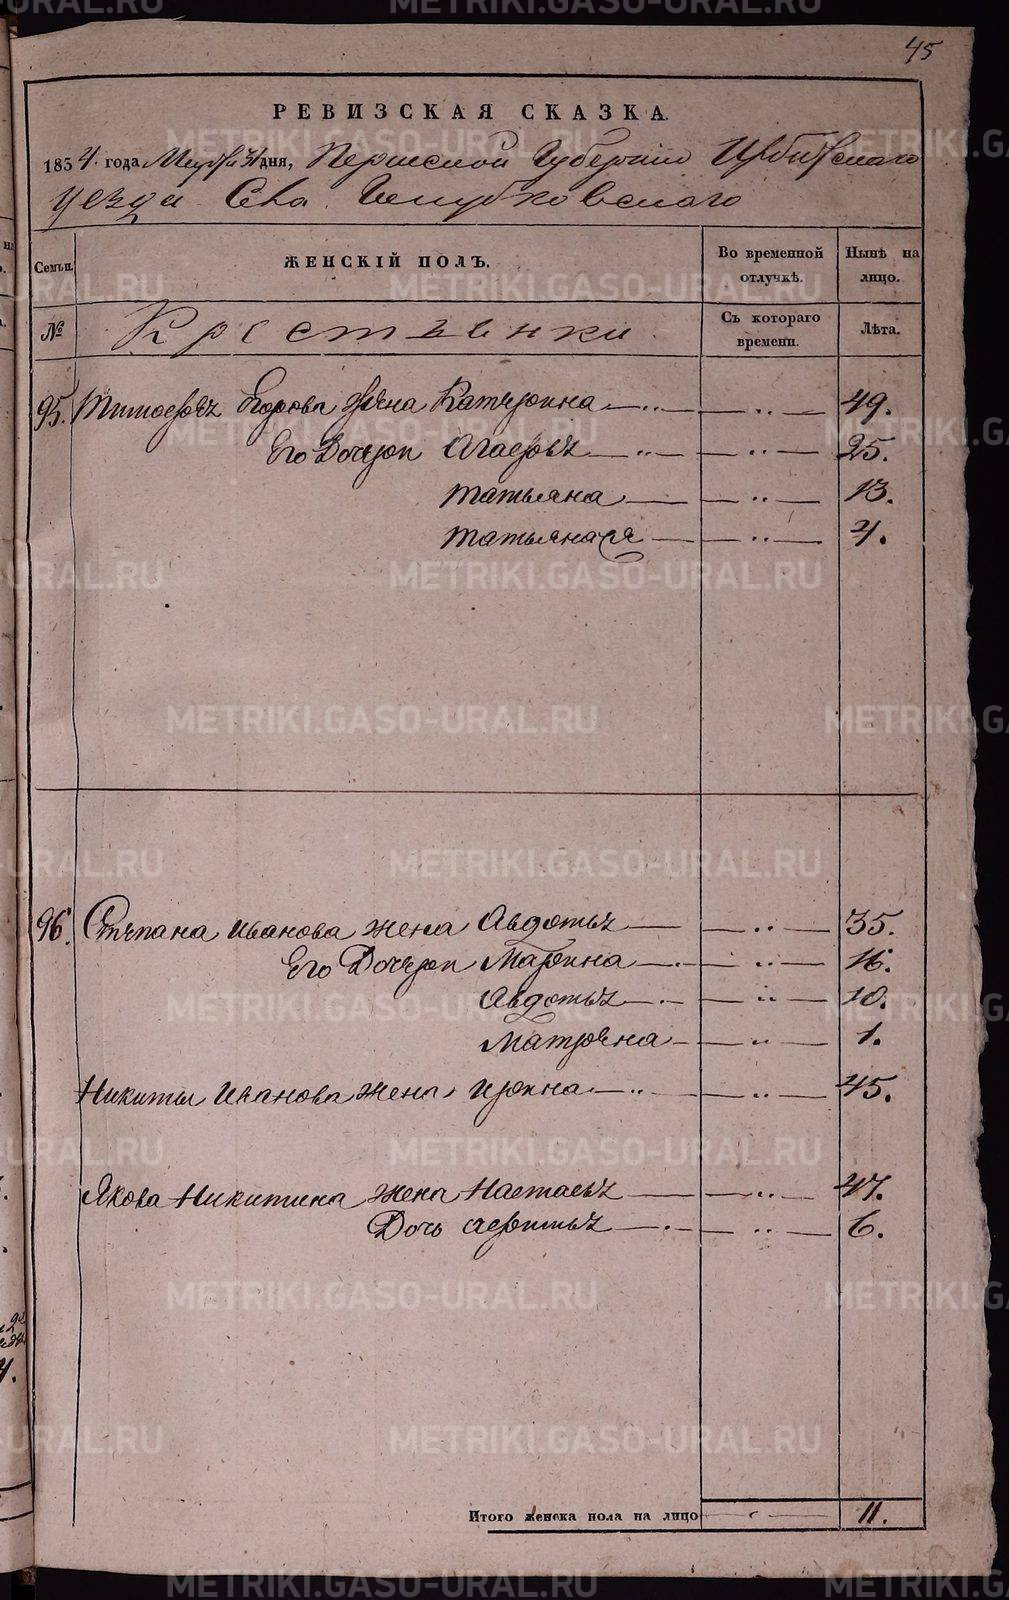 45
РЕВИЗСКАЯ СКАЗКА.
1834. года Марта 31 дня, Пермской Губернии Ирбитскаго
уезда Села Голубковскаго
Семьи. ЖЕНСКІЙ ПОЛЪ. Во временной отлучкѣ. Нынѣ на лицо.
№ Крестьянки. Съ котораго времени. Лѣта.
95. Тимофея Егорова жена Катерина 49.
Его Дочери Агафья 25.
Татьяна 13.
Татьяна 2я 4.
96. Степана Иванова жена Авдотья 35.
Его Дочери Марина 16.
Авдотья 10.
Матрена 1.
Никиты Иванова жена Ирина 45.
Якова Никитина жена Настасья 47.
Дочь 6.
Итого женска пола на лицо 11.
METRIKI.GASO-URAL.RU